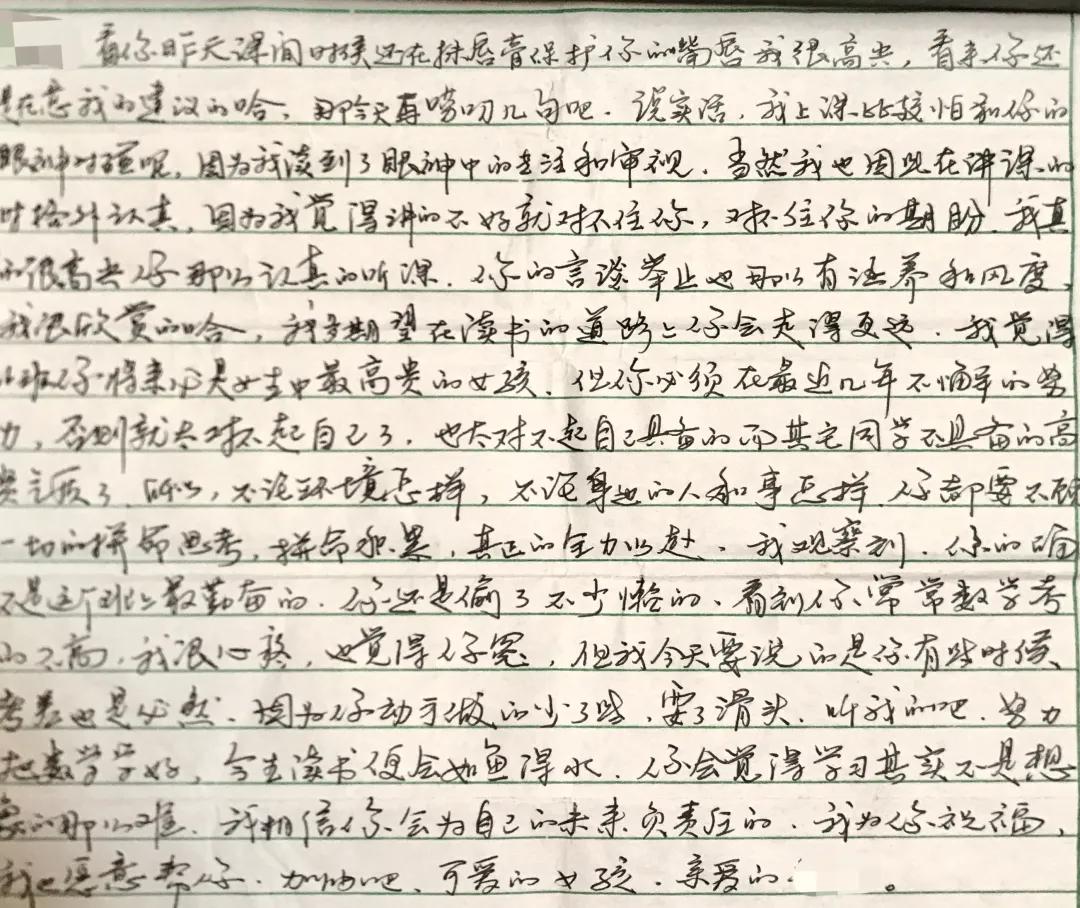 看你昨天课间时候还在抹唇膏保护你的嘴唇我很高兴，看来你还
是在意我的建议的哈，那今天再唠叨几句吧．说实话，我上课比较怕和你的
眼神对碰呢，因为我读到了眼神中的专注和审视．当然我也因此在讲课的
时格外认真，因为我觉得讲的不好就对不住你，对不住你的期盼．我真
的很高兴你那么认真的听课．你的言谈举止也那么有涵养和风度，
我很欣赏的哈，我多期望在读书的道路上你会走得更远．我觉得
班你将来必是女生中最高贵的女孩．但你必须在最近几年不懈的努
力，否则就太对不起自己了，也太对不起自己具备的而其它同学不具备的高
贵之质了．所以，不论环境怎样，不论身边的人和事怎样．你都要不顾
一切的拼命思考，拼命积累，真正的全力以赴．我观察到．你的确
不是这个班上最勤奋的．你还是偷了不少懒的．看到你常常数学考
的不高，我很心疼，也觉得你冤，但我今天要说的是你有些时候
考差也是必然．因为你动手做的少了些．耍了滑头．听我的吧．努力
把数学学好，今生读书便会如鱼得水．你会觉得学习其实不是想
象的那么难．我相信你会为自己的未来负责任的．我为你祝福，
我也愿意帮你．加油吧．可爱的女孩．亲爱的 。